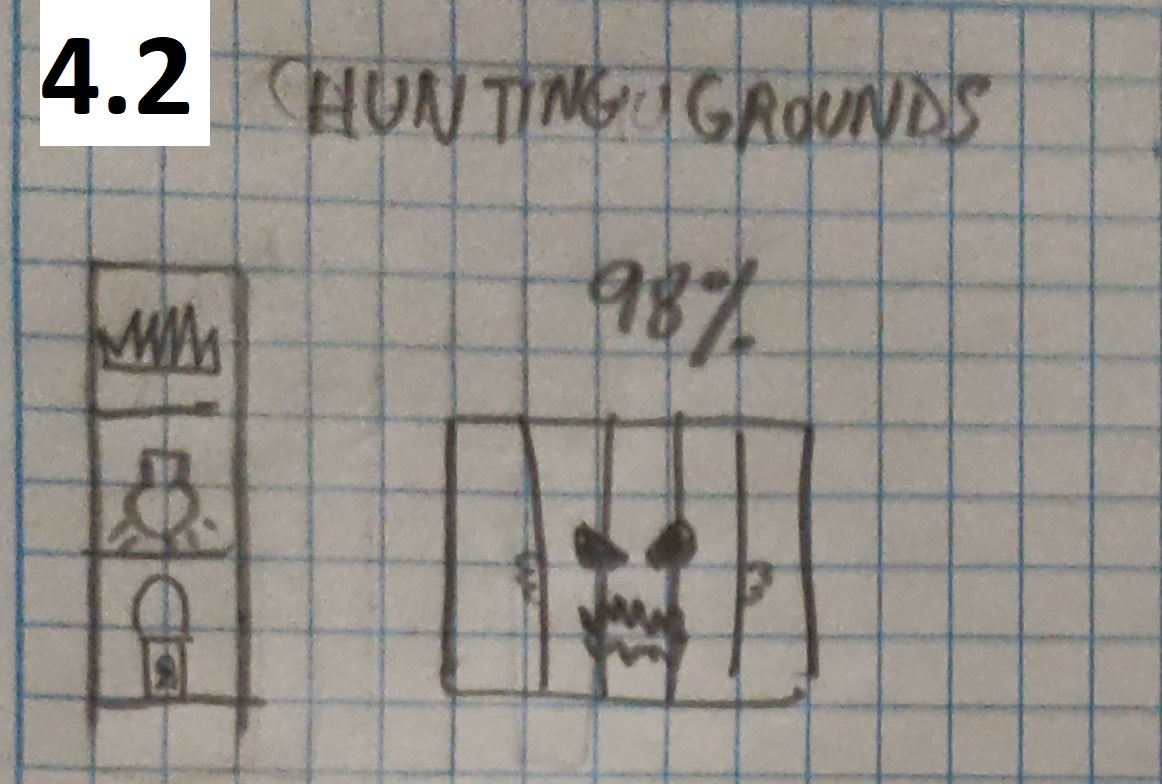 4.2
HUNTING GROUNDS
98%